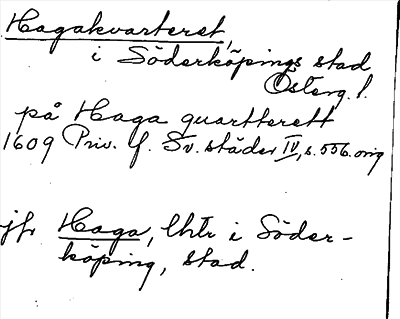 Hagakvarteret,
i Söderköpings stad
Österg. l.
på Haga quartterett
1609 Priv. f. Sv. städer IV, s. 556. orig
jfr Haga, lhtr i Söder-
köping, stad.